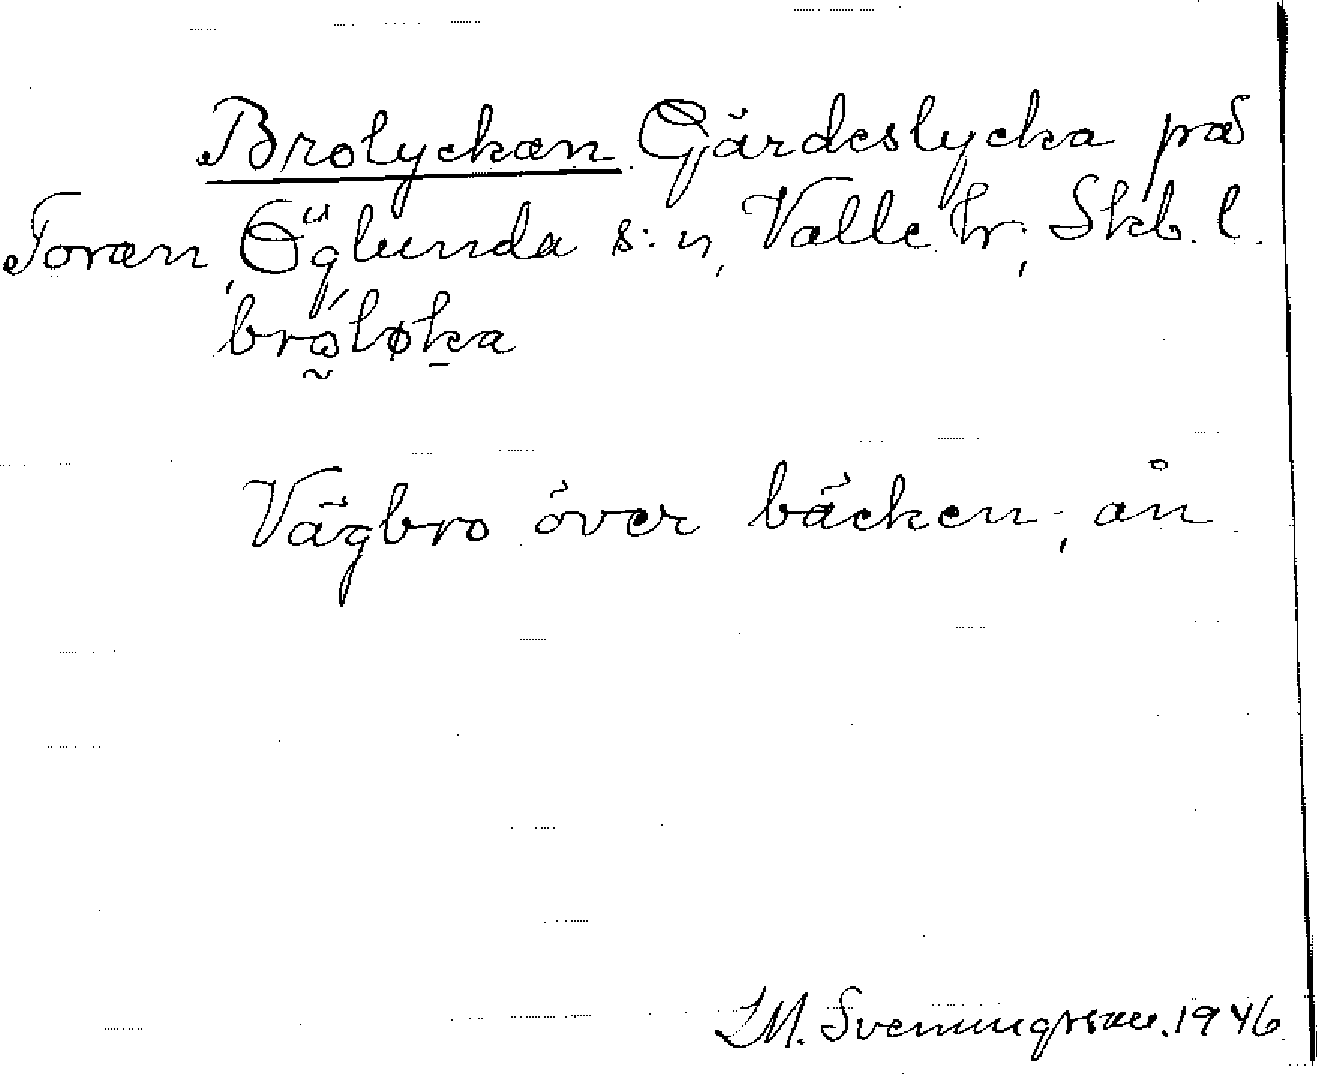 Brolyckan Gärdeslycka på
Toran, Öglunda s:n, Valle hr, Skb. l.
bro̰´løḵa
Vägbro över bäcken, ån
I.M. Svenungsson. 1946